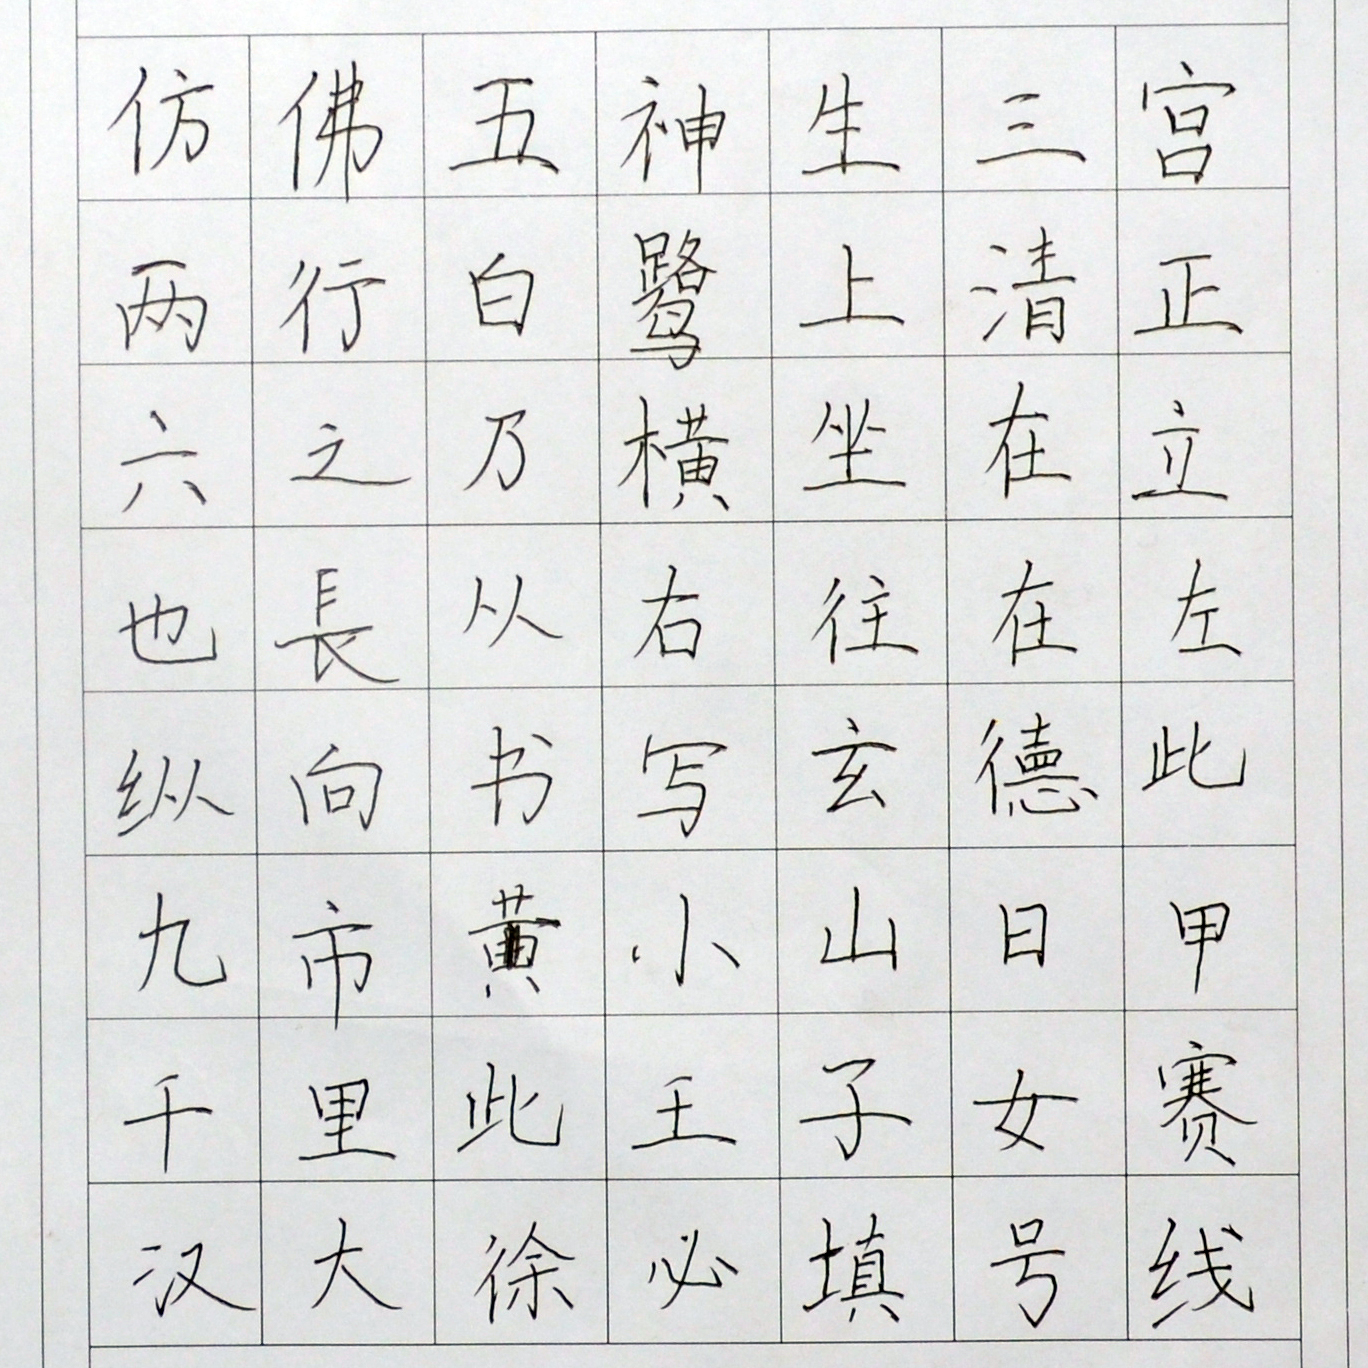 仿佛五神生三宫
两行白鹭上清正
六之乃横坐在立
也長从右往在左
纵向书写玄德此
九市黄小山日甲
千里此王子女赛
汉大徐必填号线